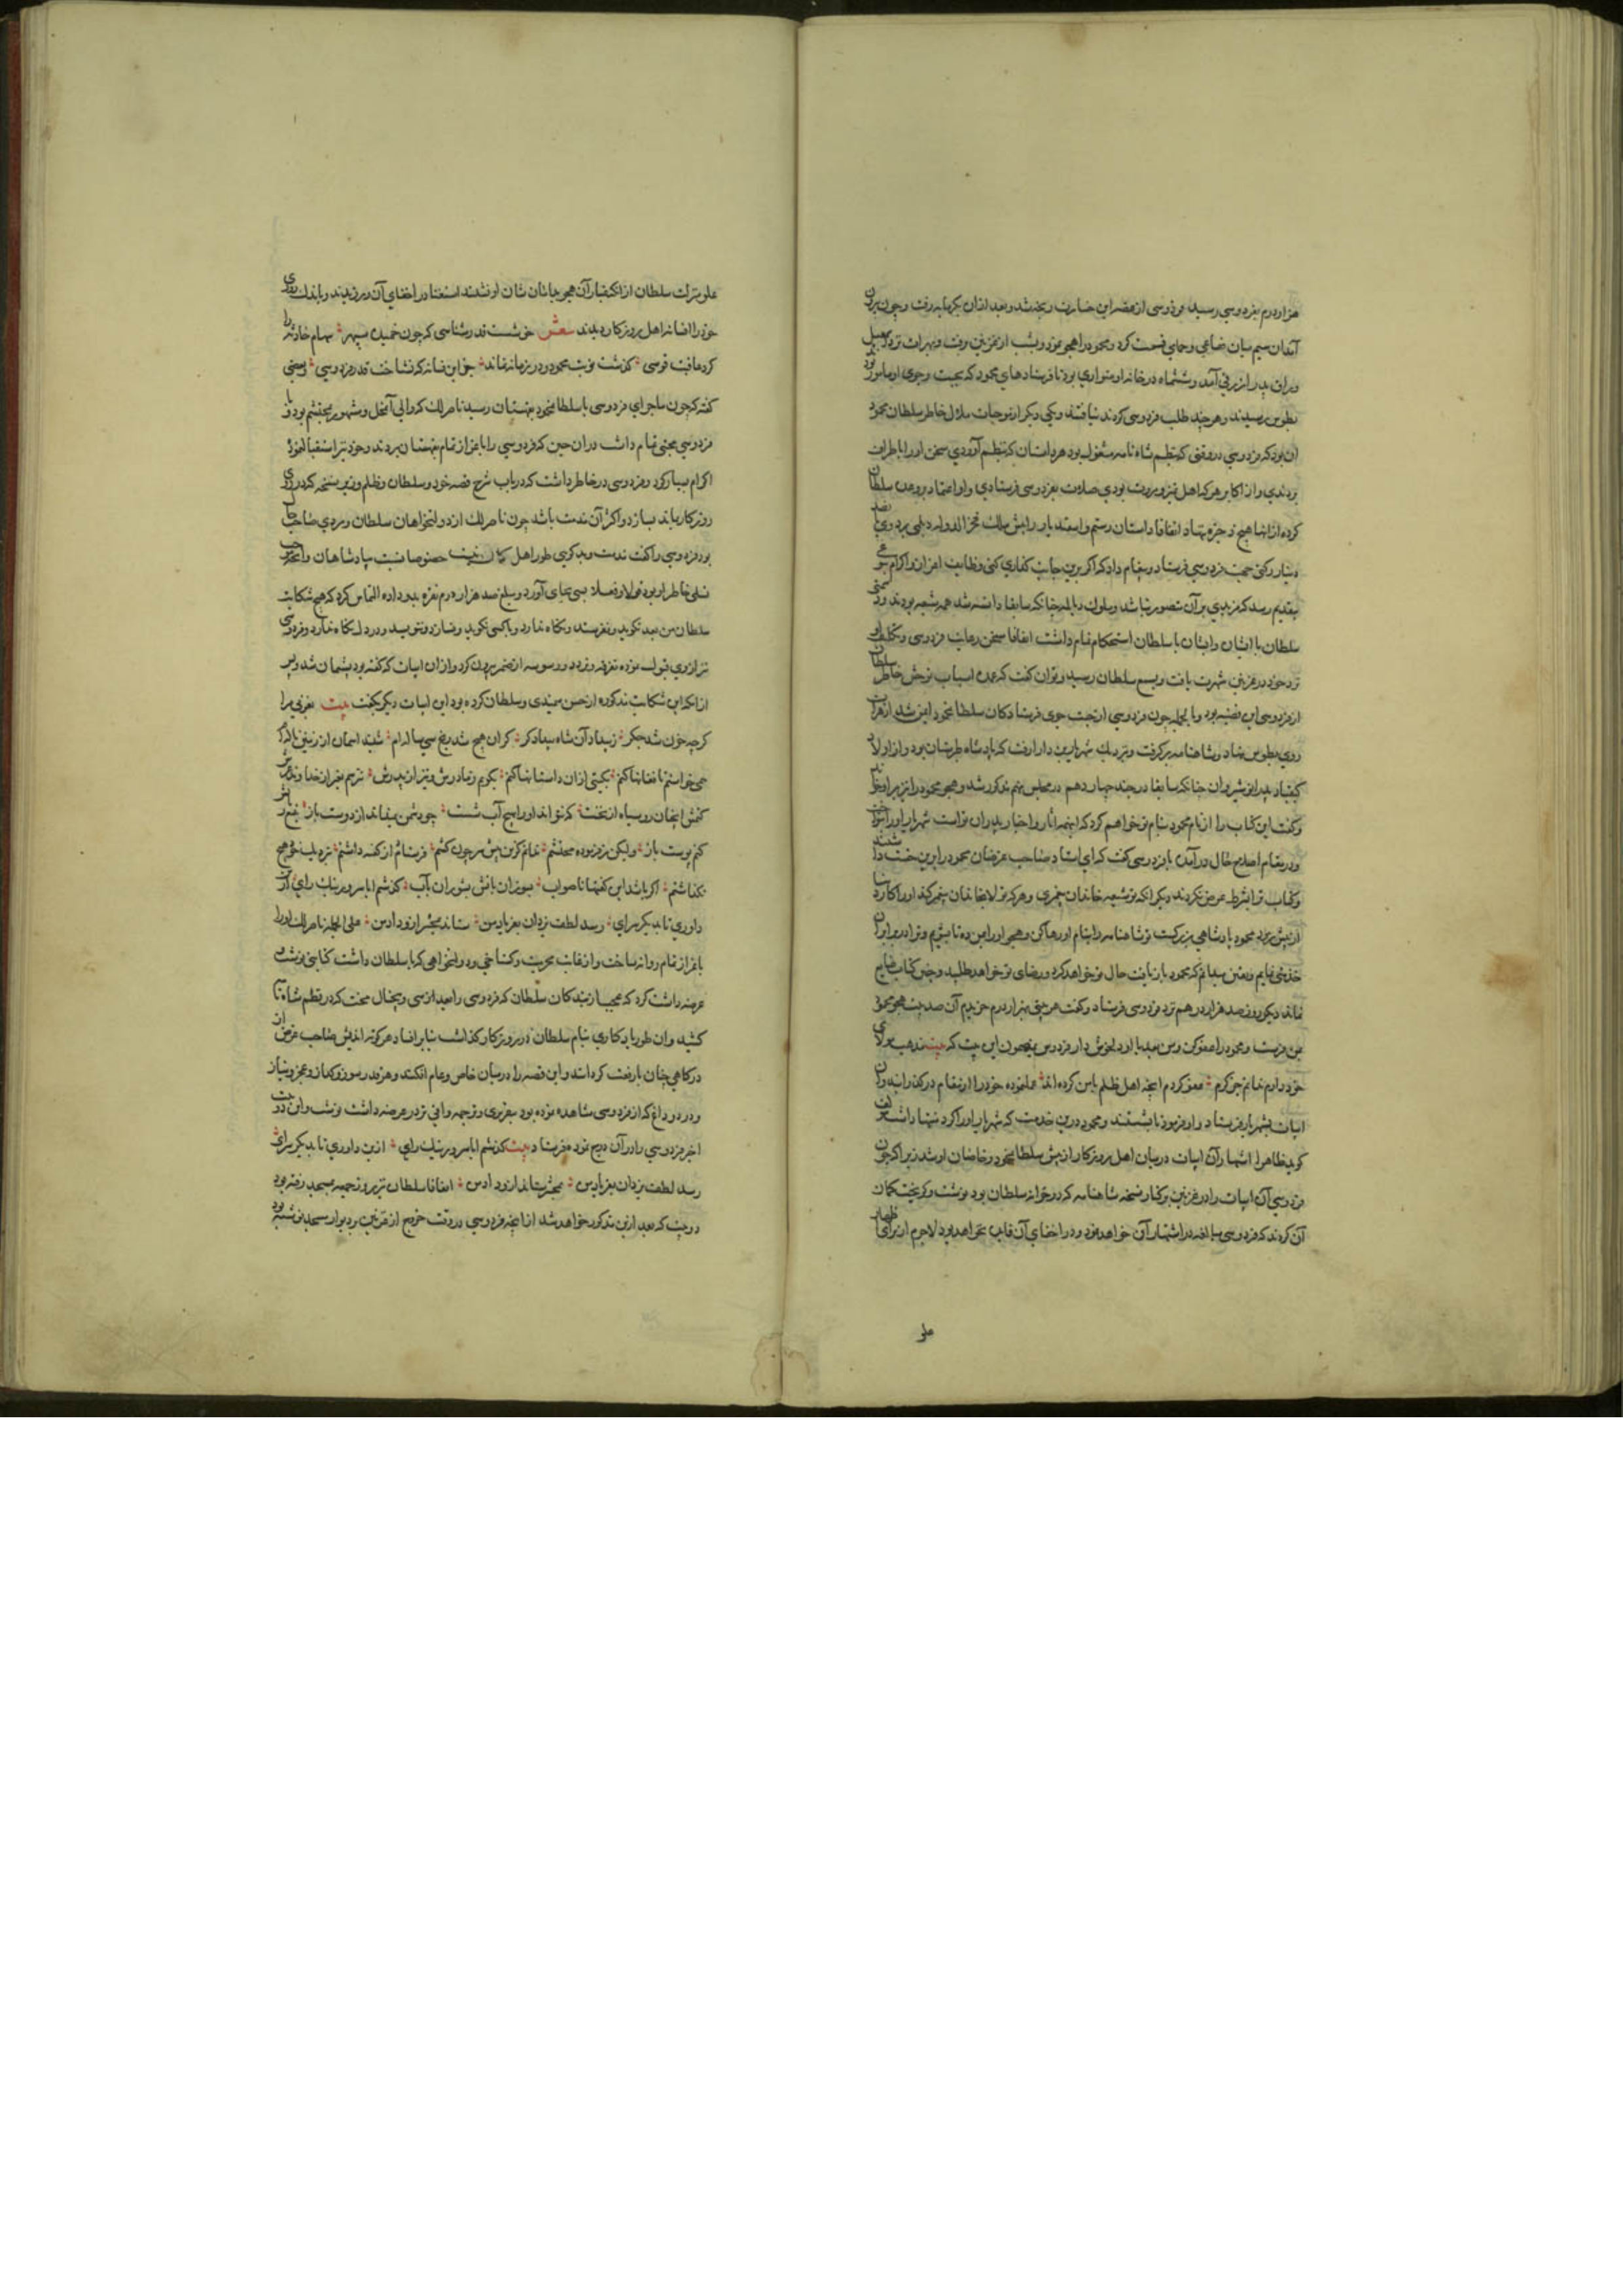 هزار درم بفردوسی رسید فردوسی ازین خسارت رنجه شد و بعد ازان بگرمابه رفت و چون برون
آمد آن سیم میان فقاعی و حمامی قسمت کرد و محمود را هجو کرد و شب از غزنین رفت و بهرات نزد اسمعیل
وراق پدر ازرقی آمد و ششماه در خانه او متواری بود تا فرستادهای محمود که بجست و جوی او مامور بود
بطوس رسیدند و هر چند طلب فردوسی کردند نیافتند و یکی دیگر از موجبات ملال خاطر سلطان محمود
آن بود که فردوسی در وقتی که بنظم شاه نامه مشغول بود هر داستان که بنظم آوردی سخن او را باطراف
بردندی و از اکابر هر که اهل تمیز و مروت بودی صلات بفردوسی فرستادی و او اعتماد بر وعده سلطان
کرده از آنها هیچ ذخیره ننهاد اتفاقا داستان رستم و اسفندیار را پیش ملک فخر الدوله دیلمی برد وی
دینار رکنی جهت فردوسی فرستاد و پیغام داد که اگر برین جانب گذاری کنی وظایف اعزاز و اکرام
بتقدیم رسد که مزیدی بر آن متصور نباشد و ملوک دیالمه چنانکه سابقا دانسته شد همه شیعه بودند
سلطان با ایشان و ایشان با سلطان استحکام تمام داشت اتفاقا سخن رعایت فردوسی و تکلیف او
نزد خود در غزنین شهرت یافت و بسمع سلطان رسید و توان گفت که عمده اسباب توحش خاطر سلطان
از فردوسی این قضیه بود و بالجمله چون فردوسی از جست جوی فرستادگان سلطان محمود ایمن شد از هرات
روی بطوس نهاد و شاهنامه برگرفت و بنزدیک شهریار بن دارا رفت که پادشاه طبرستان بود و از اولاد
کیقباد پدر انوشیروان چنانکه سابقا در جند چهاردهم در مجلس پنجم مذکور شد و هجو محمود را نیز برو خواند
و گفت این کتاب را از نام محمود بنام تو خواهم کرد که اینهمه آثار و اخبار پدران تو است شهریار او را بنواخت
و در مقام اصلاح حال در آمده با فردوسی گفت که ای استاد صاحب غرضان محمود را برین داشتند
و کتاب ترا بشرط عرض نکردند دیگر آنکه تو شیعه خاندان پیغمبری و هر که تولا بخاندان پیغمبر کند او را کار دنیا
از پیش نرود محمود پادشاهی بزرگست تو شاهنامه را بنام او رها کن و هجو او را بمن ده تا بشویم و ترا در برابر آن
خدمتی نمایم و یقین میدانم که محمود باز بافت حال تو خواهد کرد و رضای تو خواهد طلبید و چنین کتاب ضایع
نماند دیگر روز صد هزار درهم نزد فردوسی فرستاد و گفت هر بیتی بهزار درم خریدم آن صد بیت هجو محمود
بمن فرست و محمود را عفو کن
خود را درم نمانم چو گرم معفو کردم آنچه اهل ظلم با من کرده اند
ابیات بشهریار فرستاد و او فرمود تا بشستند و محمود درین خدمت که شهریار او را کرد منتها داشت
گوید ظاهرا اشتهار آن ابیات در میان اهل روزگار از پیش سلطان محمود و خاصان او شد زیرا که چون
فردوسی آن ابیات را در غزنین بر کنار نسخه شاهنامه که در خزانه سلطان بود نوشت و گریخت گمان
آن کردند که فردوسی مبالغه در اشتهار آن خواهد نمود و در اخفای آن فایده نخواهد بود لاجرم از برای اظهار
علو
علو منزلت سلطان از آنکه غبار آن هجو بدامان شان او نشیند استغنا در اخفای آن ورزیدند و باندک روزی
خود را افسانه اهل روزگار دیدند شعر خوشست قدر شناسی که چون خمیده سپهر سهام حادثه را
کرد عاقبت قوسی گذشت نوبت محمود و در زمانه نماند جز این فسانه که نشناخت قدر فردوسی و بعضی
گفته که چون ماجرای فردوسی با سلطان محمود بقهستان رسید ناصر لک که والی آن محل و مشهور بمحتشم بود و با
فردوسی محبتی تمام داشت در آن حین که فردوسی را باعزاز تمام بقهستان بردند و خود نیز استقبال نمود
اکرام بسیار کرد و فردوسی در خاطر داشت که در باب شرح قصه خود و سلطان و ظلم وزیر نسخه که در روی
روزگار بماند بسازد و اکثر آن مذمت باشد چون ناصر لک از دولتخواهان سلطان و مردی صاحب
بود فردوسی را گفت مذمت و بدگویی طور اهل نیست خصوصا نسبت پادشاهان و آنچه
تسلی خاطر او بود قولا و فعلا بجای آورد و مبلغ صد هزار درم نقره بدو داده التماس کرد که هیچ شکایت
سلطان من بعد نگوید و نفرستد و نگاه ندارد و با کسی نگوید و نسازد و ننویسد و در دل نگاه ندارد و فردوسی
نیز از وی قبول نموده تفرقه و تردد و وسوسه از ضمیر بیرون کرد و از آن ابیات که گفته بود پشیمان شد و پس
از آنکه این شکایت مذکوره از حسن میمندی و سلطان کرده بود این ابیات دیگر بگفت بیت بغزنی مرا
گرچه خون شد جگر ز بیداد آن شاه بیدادگر کزان هیچ شد رنج سی ساله ام شنید آسمان از زمین ناله ام
همی خواستم تا فغانها کنم بگیتی ازان داستانها کنم بگویم ز مادرش و نیز از پدرش نترسم بغیر از خداوند عرش
کنمش آنچنان روسیاه از نخست که نتواند او را بهیچ آب شست چو دشمن نمیداند از دوست باز بتیغ زبانش
کنم پوست باز ولیکن بفرموده محتشم ندانم کزین پیش سر چون کشم فرستادم از گفته داشتم بنزدیک خود هیچ
نگذاشتم اگر باشد این گفتها ناصواب بسوزان بآتش بشوران بآب گذشتم ایا سرور نیک رای ازین
داوری تا بدیگر سرای رسد لطف یزدان بفریاد من ستاند بمحشر ازو داد من علی الجمله ناصر لک او را
باعزاز تمام روانه ساخت و از غایت محرمیت و گستاخی و دولتخواهی که با سلطان داشت کتابتی نوشت و
عرضه داشت کرد که عجبا از بندگان سلطان که فردوسی را بعد از سی و پنج سال محنت که در نظم شاه نامه
کشید و آن طور یادگاری بنام سلطان در روزگار گذاشت بنابر افساد هر کوته اندیش صاحب غرض از
درگاهی چنان بارفعت گردانند و این قصه را در میان خاص و عام افکنند و هر چند رسوز و گداز و عجز و نیاز
و درد و داغ که از فردوسی مشاهده نموده بود بتقریری و توجهی وافی نیز در عرضه داشت نوشت و این دو بیت
آخر فردوسی را در آن درج نموده فرستاد بیت گذشتم ایا سرور نیک رای ازین داوری تا بدیگر سرای
رسد لطف یزدان بفریاد من بمحشر ستاند ازو داد من اتفاقا سلطان نیز روز جمعه بمسجد رفته بود
دو بیت که بعد ازین مذکور خواهد شد از آنچه فردوسی در وقت خروج از غزنین بر دیوار مسجد نوشته بود